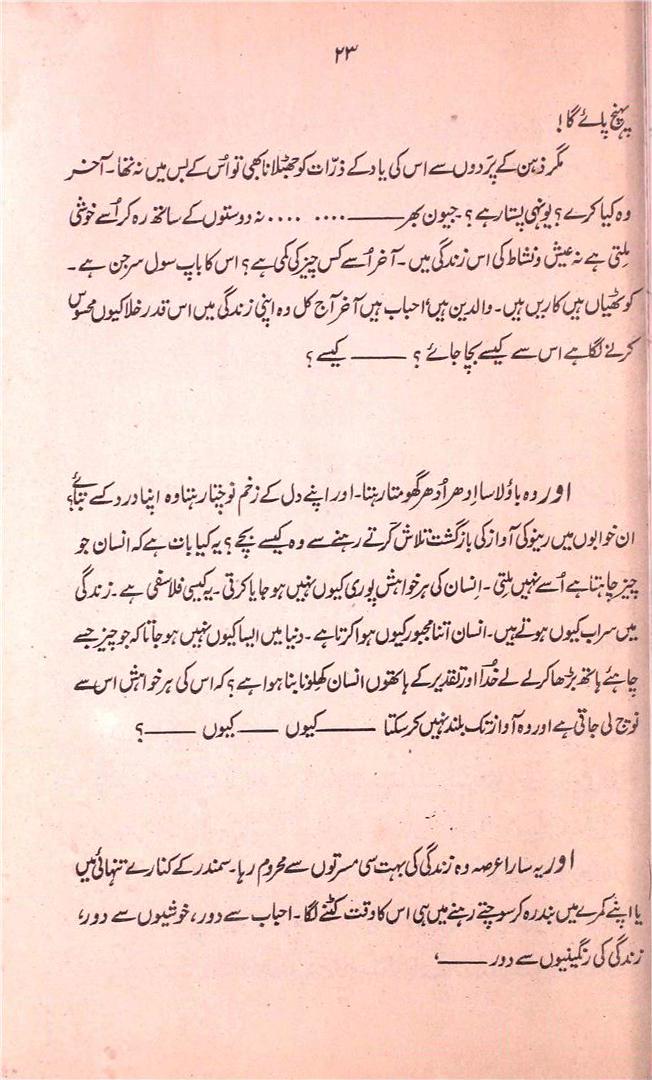 ۲۳
پہنچ پائے گا!
مگر ذہن کے پردوں سے اس کی یاد کے ذرّات کو جھٹلانا کبھی تو اُس کے بس میں نہ تھا۔ آخر
وہ کیا کرے؟ یونہی پستا رہے؟ جیون بھر ——— .... .... نہ دوستوں کے ساتھ رہ کر اُسے خوشی
ملتی ہے نہ عیش و نشاط کی اس زندگی میں۔ آخر اُسے کس چیز کی کمی ہے؟ اس کا باپ سول سرجن ہے۔
کوٹھیاں ہیں کاریں ہیں۔ والدین ہیں، احباب ہیں آخر آج کل وہ اپنی زندگی میں اس قدر خلا کیوں محسوس
کرنے لگا ہے اس سے کیسے بچا جائے؟ ——— کیسے؟
اور وہ باؤلا سا اِدھر اُدھر گھومتا رہتا۔ اور اپنے دل کے زخم نوچتا رہتا وہ اپنا درد کسے بتائے؟
ان خوابوں میں رینو کی آواز کی بازگشت تلاش کرتے رہنے سے وہ کیسے بچے؟ یہ کیا بات ہے کہ انسان جو
چیز چاہتا ہے اُسے نہیں ملتی۔ اِنسان کی ہر خواہش پوری کیوں نہیں ہو جایا کرتی۔ یہ کیسی فلاسفی ہے۔ زندگی
میں سراب کیوں ہوتے ہیں۔ انسان اتنا مجبور کیوں ہوا کرتا ہے۔ دنیا میں ایسا کیوں نہیں ہو جاتا کہ جو چیز جسے
چاہئے ہاتھ بڑھا کر لے لے خُدا اور تقدیر کے ہاتھوں انسان کھلونا بنا ہوا ہے؟ کہ اس کی ہر خواہش اس سے
نوچ لی جاتی ہے اور وہ آواز تک بلند نہیں کر سکتا ——— کیوں ——— کیوں ———؟
اور یہ سارا عرصہ وہ زندگی کی بہت سی مسرتوں سے محروم رہا۔ سمندر کے کنارے تنہائی میں
یا اپنے کمرے میں بند رہ کر سوچتے رہنے میں ہی اس کا وقت کٹنے لگا۔ احباب سے دور، خوشیوں سے دور،
زندگی کی رنگینیوں سے دور ———،